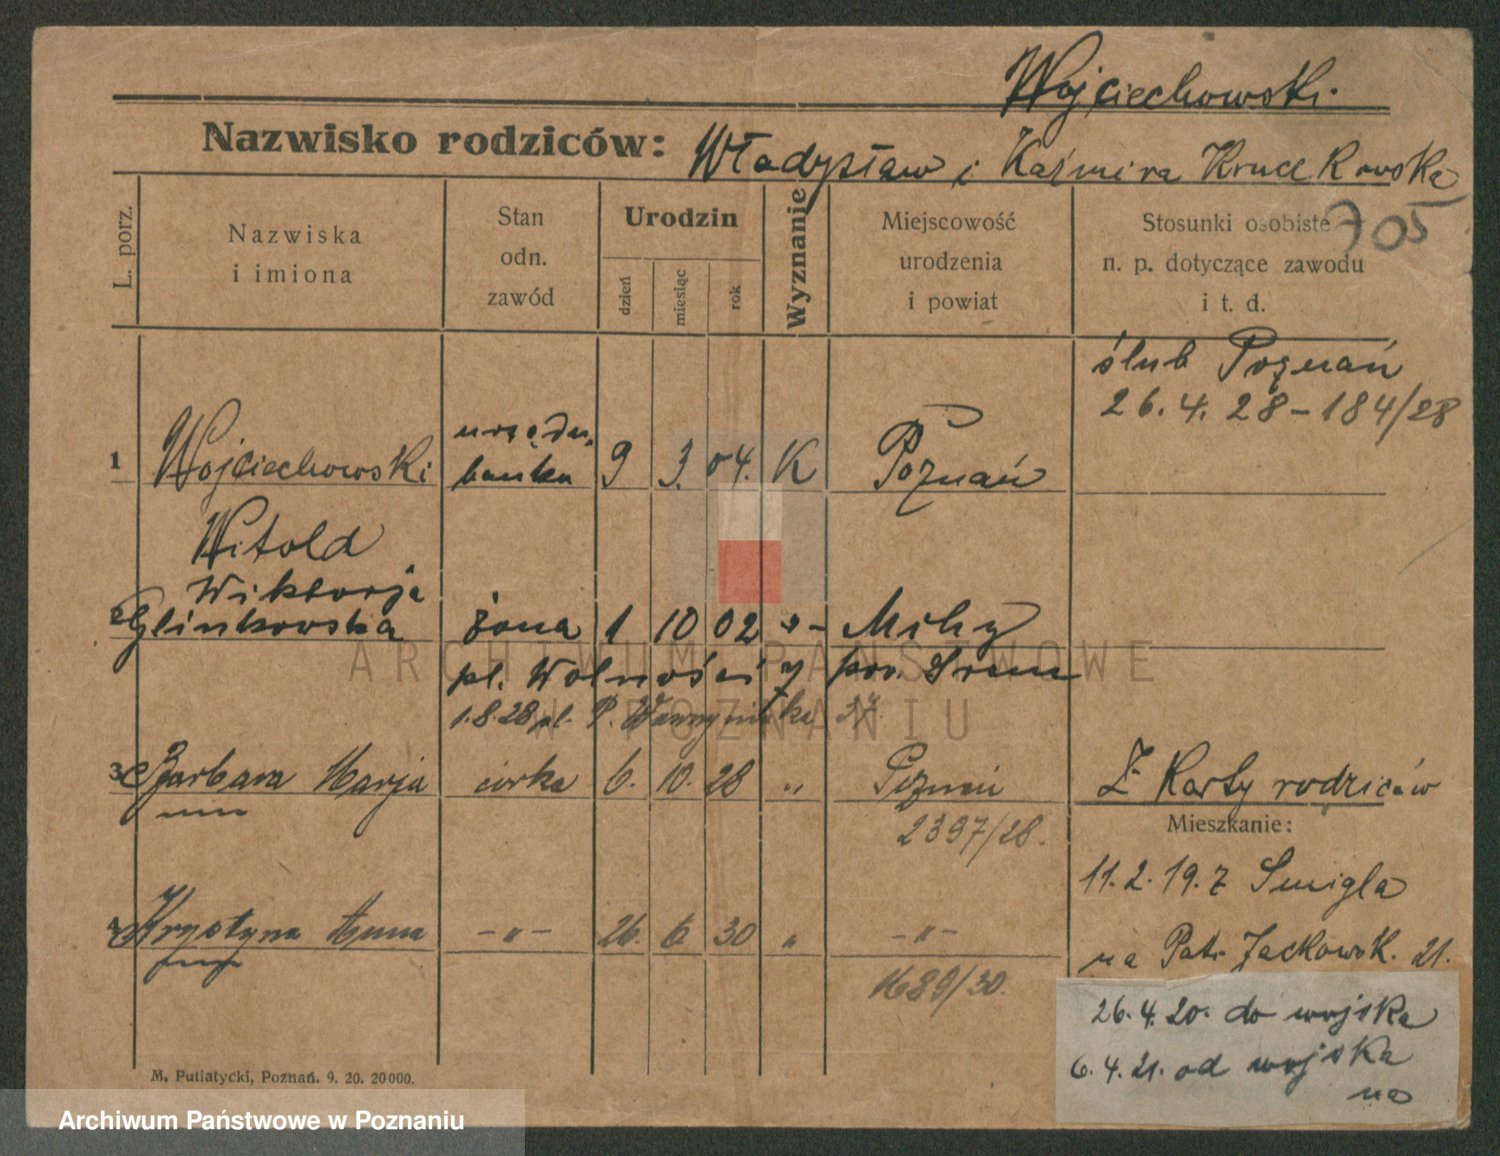 Wojciechowski.
Nazwisko rodziców: Władysław i Kaźmira Kruczkowska
705
L. porz.
Nazwiska i imiona
Stan odn. zawód
Urodzin
dzień miesiąc rok
Wyznanie
Miejscowość urodzenia i powiat
Stosunki osobiste n. p. dotyczące zawodu i t. d.
ślub Poznań
26.4.28-184/28
1 Wojciechowski urzędn. banku 9 3. 04. K Poznań
Witold
Wiktorja
2 Glinkowska żona 1 10 02 -"-
pl. Wolności 7 pow. Śrem
1.8.28 pl.
3 Barbara Marja córka 6. 10. 28 " Poznań
2397/28.
Z Karty rodziców
Mieszkanie:
11.2.19. z Śmigla
na Patr. Jackowsk. 21.
4 Krystyna Anna -"- 26. 6. 30 " -"-
1689/30.
26.4.20. do wojska
6.4.21. od wojska
na
M. Putiatycki, Poznań. 9. 20. 20000.
ARCHIWUM PAŃSTWOWE
W POZNANIU
Archiwum Państwowe w Poznaniu